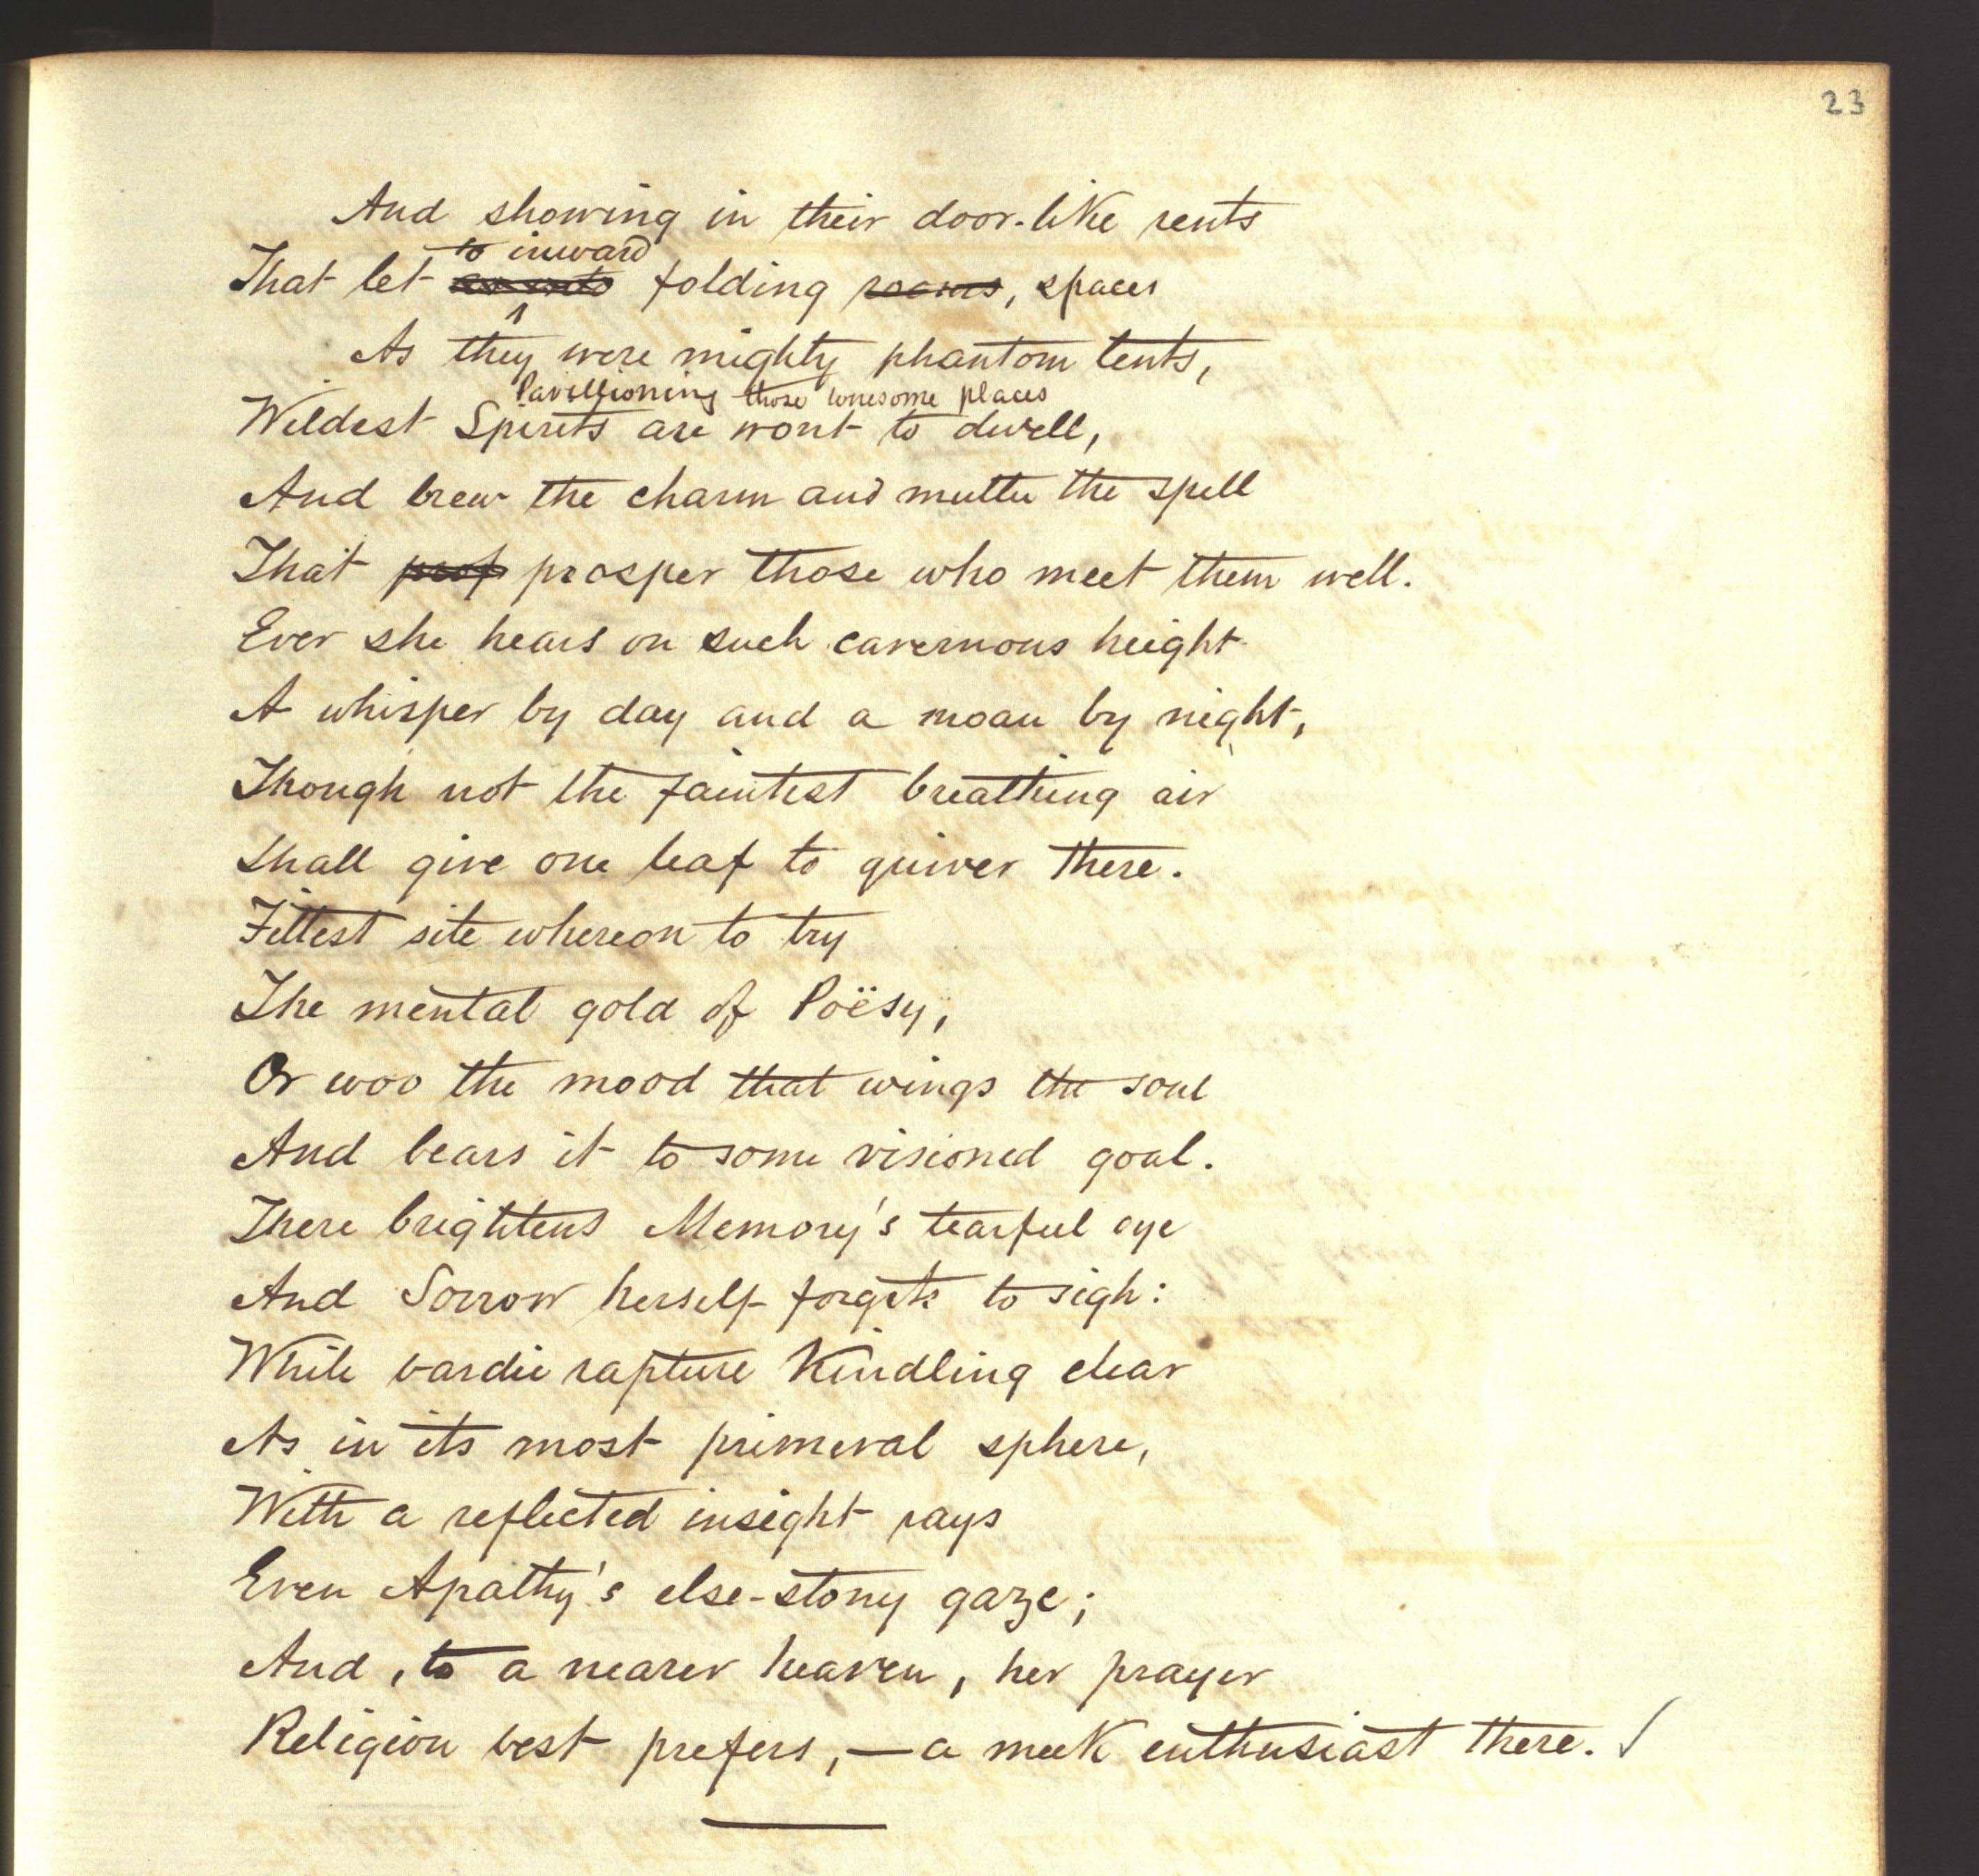 23
And showing in their door-like rents
to inward
That let folding rooms, spaces
As they were mighty phantom tents,
Pavillioning those lonesome places
Wildest Spirits are wont to dwell,
And brew the charm and mutter the spell
That prosp prosper those who meet them well.
Ever she hears on such cavernous height
A whisper by day and a moan by night,
Though not the faintest breathing air
Shall give one leaf to quiver there.
Fittest site whereon to try
The mental gold of Poësy,
Or woo the mood that wings the soul
And bears it to some visioned goal.
There brightens Memory's tearful eye
And Sorrow herself forgets to sigh:
While bardic rapture Kindling clear
As in its most primeval sphere,
With a reflected insight rays
Even Apathy's else-stony gaze;
And, to a nearer heaven, her prayer
Religion best prefers,—a meek enthusiast there.